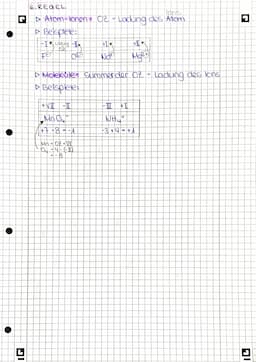 6. REGEL
▷ Atom-Ionen: OZ = Ladung des Atom Ions
▷ Beispiele:
-I -II +I +II
F⁻ O²⁻ Na⁺ Mg²⁺
▷ Moleküle: Summe der OZ = Ladung des Ions
▷ Beispiele:
+VII -II -III +I
MnO₄⁻ NH₄⁺
+7 -8 = -1 -3 +4 = +1
= -8